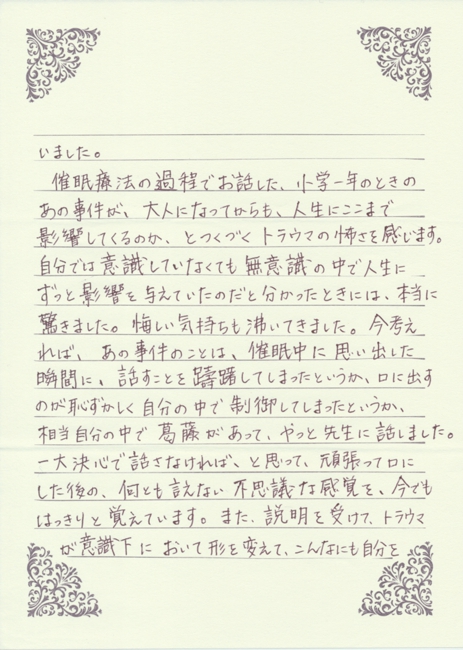 いました。
催眠療法の過程でお話した、小学一年のときの
あの事件が、大人になってからも、人生にここまで
影響してくるのか、とつくづくトラウマの怖さを感じます。
自分では意識していなくても無意識の中で人生に
ずっと影響を与えていたのだと分かったときには、本当に
驚きました。悔しい気持ちも沸いてきました。今考え
れば、あの事件のことは、催眠中に思い出した
瞬間に、話すことを躊躇してしまったというか、口に出す
のが恥ずかしく自分の中で制御してしまったというか、
相当自分の中で葛藤があって、やっと先生に話しました。
一大決心で話さなければ、と思って、頑張って口に
した後の、何とも言えない不思議な感覚を、今でも
はっきりと覚えています。また、説明を受けて、トラウマ
が意識下において形を変えて、こんなにも自分を